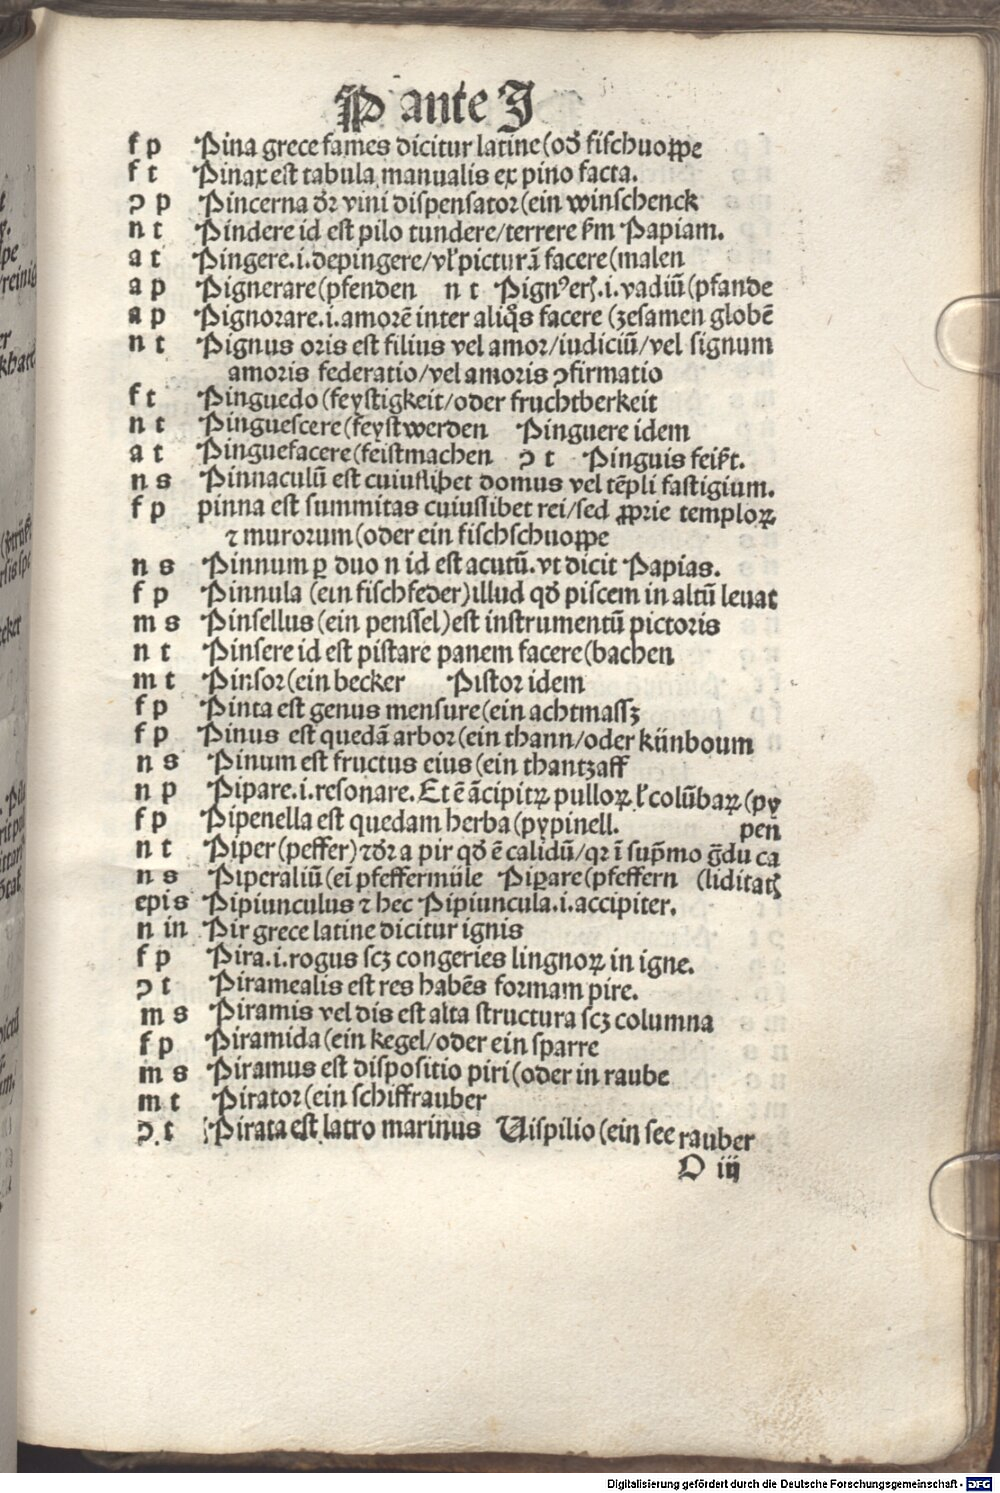 P ante J
f p Pina grece fames dicitur latine (od̄ fischuoꝓpe
f t Pinax est tabula manualis ex pino facta.
ↄ p Pincerna dr̄ vini dispensator (ein winschenck
n t Pindere id est pilo tundere/terrere km̄ Papiam.
a t Pingere.i.depingere/vl̓ picturā facere (malen
a p Pignerare (pfenden n t Pignꝰ erꝭ.i.vadiū (pfande
a p Pignorare.i.amorē inter aliq̊s facere (zesamen globē
n t Pignus oris est filius vel amor/iudiciū/vel signum
amoris federatio/vel amoris ↄfirmatio
f t Pinguedo (feystigkeit/oder fruchtberkeit
n t Pinguescere (feystwerden Pinguere idem
a t Pinguefacere (feistmachen ↄ t Pinguis feist.
n s Pinnaculū est cuiuslibet domus vel tēpli fastigium.
f p pinna est summitas cuiuslibet rei/sed ꝓprie temploꝝ
⁊ murorum (oder ein fischschuoꝓpe
n s Pinnum ꝑ duo n id est acutū. vt dicit Papias.
f p Pinnula (ein fischfeder) illud qd̄ piscem in altū leuat
m s Pinsellus (ein penssel) est instrumentū pictoris
n t Pinsere id est pistare panem facere (bachen
m t Pinsor (ein becker Pistor idem
f p Pinta est genus mensure (ein achtmassꝫ
f p Pinus est quedā arbor (ein thann/oder künboum
n s Pinum est fructus eius (ein thantzaff
n p Pipare.i.resonare. Et ē ācipitꝝ pulloꝝ l̓ colūbaꝝ (py
f p Pipenella est quedam herba (pypinell. pen
n t Piper (peffer) ⁊dr̄ a pir qd̄ ē calidū/qr ī sup̄mo ḡdu ca
n s Piperaliū (eī pfeffermüle Piꝑare (pfeffern (liditatꝭ
epi s Pipiunculus ⁊ hec Pipiuncula.i.accipiter.
n in Pir grece latine dicitur ignis
f p Pira.i.rogus scꝫ congeries lingnoꝝ in igne.
ↄ t Piramealis est res habēs formam pire.
m s Piramis vel dis est alta structura scꝫ columna
f p Piramida (ein kegel/oder ein sparre
m s Piramus est dispositio piri (oder in raube
m t Pirator (ein schiffrauber
ↄ t Pirata est latro marinus Uispilio (ein see rauber
O iij
Digitalisierung gefördert durch die Deutsche Forschungsgemeinschaft - DFG